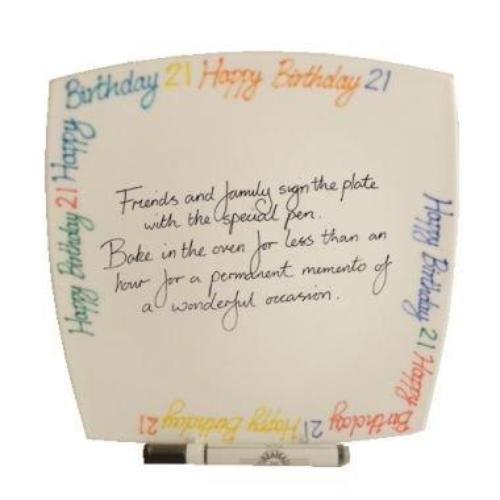 Birthday 21 Happy Birthday 21
Friends and family sign the plate
with the special pen.
Bake in the oven for less than an
hour for a permanent memento of
a wonderful occasion.
Happy Birthday 21 Happy
Birthday 21 Happy Birthday 21
Happy Birthday 21 Happy